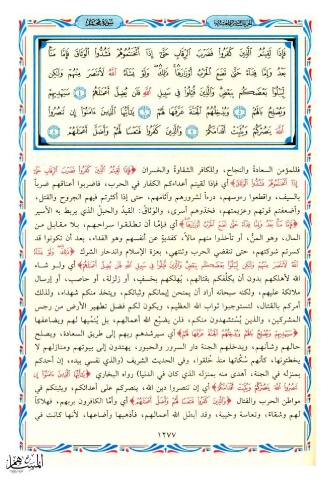 سورة محمد
فَإِذَا لَقِيتُمُ الَّذِينَ كَفَرُوا فَضَرْبَ الرِّقَابِ حَتَّىٰ إِذَا أَثْخَنْتُمُوهُمْ فَشُدُّوا الْوَثَاقَ فَإِمَّا مَنًّا
بَعْدُ وَإِمَّا فِدَاءً حَتَّىٰ تَضَعَ الْحَرْبُ أَوْزَارَهَا ذَٰلِكَ وَلَوْ يَشَاءُ اللَّهُ لَانْتَصَرَ مِنْهُمْ وَلَٰكِنْ
لِيَبْلُوَ بَعْضَكُمْ بِبَعْضٍ وَالَّذِينَ قُتِلُوا فِي سَبِيلِ اللَّهِ فَلَنْ يُضِلَّ أَعْمَالَهُمْ سَيَهْدِيهِمْ
وَيُصْلِحُ بَالَهُمْ وَيُدْخِلُهُمُ الْجَنَّةَ عَرَّفَهَا لَهُمْ يَا أَيُّهَا الَّذِينَ آمَنُوا إِنْ تَنْصُرُوا
اللَّهَ يَنْصُرْكُمْ وَيُثَبِّتْ أَقْدَامَكُمْ وَالَّذِينَ كَفَرُوا فَتَعْسًا لَهُمْ وَأَضَلَّ أَعْمَالَهُمْ
فللمؤمن السعادة والنجاح، وللكافر الشقاوة والخسران ﴿فَإِذَا لَقِيتُمُ الَّذِينَ كَفَرُوا فَضَرْبَ الرِّقَابِ حَتَّىٰ
إِذَا أَثْخَنْتُمُوهُمْ فَشُدُّوا الْوَثَاقَ﴾ أي فإذا لقيتم أعداءكم الكفار في الحرب، فاضربوا أعناقهم ضرباً
بالسيف، واقطعوا رءوسهم، درءاً لشرورهم وآثامهم، حتى إذا أكثرتم فيهم الجروح والقتل،
وأضعفتم قوتهم وعزيمتهم، فخذوهم أسرى، والوثاق: القيدُ والحبلُ الذي يربط به الأسير
﴿فَإِمَّا مَنًّا بَعْدُ وَإِمَّا فِدَاءً﴾ أي فإمَّا أن تطلقوا سراحهم، بلا مقابل من
المال، وهو المنُّ، أو تأخذوا منهم مالاً، كفديةٍ عن أنفسهم وهو الفداء، بعد أن تكونوا قد
كسرتم شوكتهم، حتى تنقضي الحرب وتنتهي، بعزة الإسلام واندحار الشرك ﴿ذَٰلِكَ وَلَوْ يَشَاءُ
اللَّهُ لَانْتَصَرَ مِنْهُمْ وَلَٰكِنْ لِيَبْلُوَ بَعْضَكُمْ بِبَعْضٍ وَالَّذِينَ قُتِلُوا فِي سَبِيلِ اللَّهِ فَلَنْ يُضِلَّ أَعْمَالَهُمْ﴾ أي ولو شاء
الله لأهلكهم بدون أن يكلِّفكم بقتالهم، يهلكهم بخسفٍ، أو زلزلة، أو حاصب، أو إرسال
ملائكة عليهم، ولكنه سبحانه أراد أن يمتحن إيمانكم وثباتكم، ويتخذ منكم شهداء، ولذلك
أمركم بالقتال، لتستوجبوا ثواب الله العظيم، ويكون لكم فضل تطهير الأرض من رجس
المشركين، والذين يُستشهدون منكم، فلن يضيِّع الله أعمالهم، بل يُنَمِّيها لهم ويضاعفها
﴿سَيَهْدِيهِمْ وَيُصْلِحُ بَالَهُمْ وَيُدْخِلُهُمُ الْجَنَّةَ عَرَّفَهَا لَهُمْ﴾ أي سيرشدهم ربهم إلى طريق السعادة، ويصلح
حالهم وشأنهم، ويدخلهم الجنة دار السرور والحبور، يهتدون إلى بيوتهم ومنازلهم لا
يخطئونها، كأنهم سُكَّانها منذ خُلقوا، وفي الحديث الشريف (والذي نفسي بيده، إن أحدكم
بمنزله في الجنة، أهدى منه بمنزله الذي كان في الدنيا) رواه البخاري ﴿يَا أَيُّهَا الَّذِينَ آمَنُوا إِنْ
تَنْصُرُوا اللَّهَ يَنْصُرْكُمْ وَيُثَبِّتْ أَقْدَامَكُمْ﴾ أي إن تنصروا دين الله، ينصركم على أعدائكم، ويثبتكم في
مواطن الحرب والقتال ﴿وَالَّذِينَ كَفَرُوا فَتَعْسًا لَهُمْ وَأَضَلَّ أَعْمَالَهُمْ﴾ أي وأمَّا الكافرون بربهم، فهلاكاً
لهم وشقاءً، وتعاسة وخيبة، وقد أبطل الله أعمالهم، فأذهبها وأضاعها، لأنها كانت في
١٢٧٧